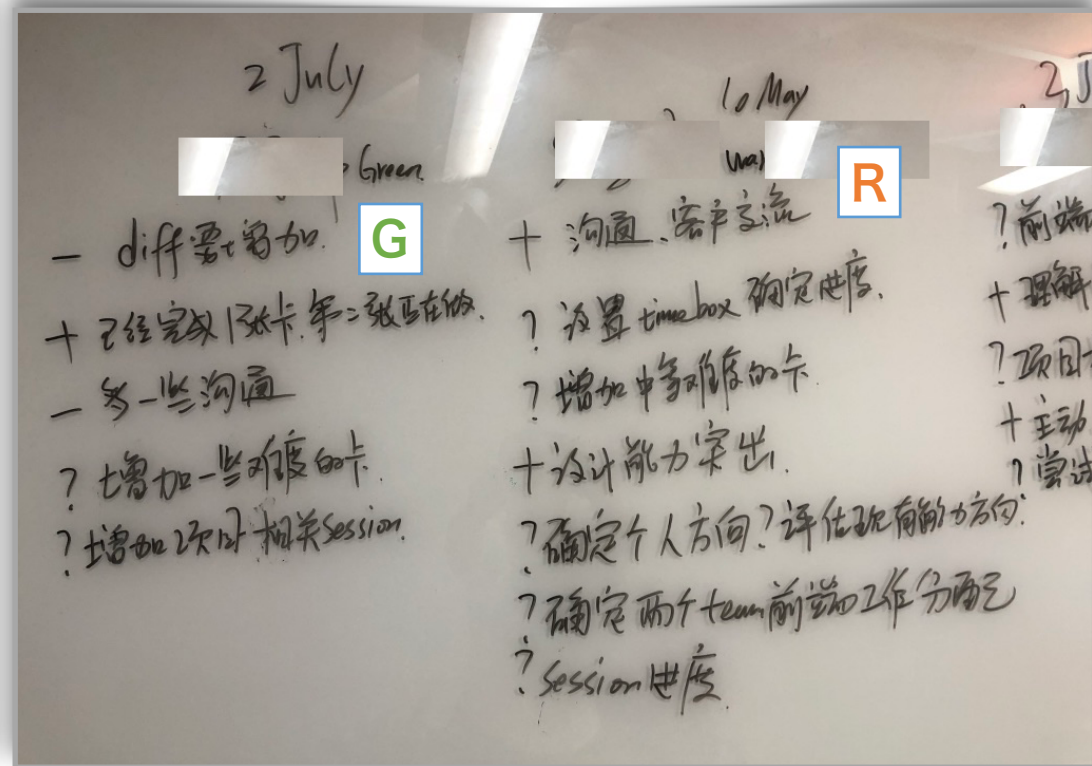 2 July
Green
G
- diff要增加.
+ 已经完成1张卡.第二张正在做.
- 多一些沟通
? 增加一些难度的卡.
? 增加项目相关session.
10 May
R
+ 沟通、客户交流
? 设置timebox确定进度.
? 增加中等难度的卡.
+ 设计能力突出.
? 确定个人方向?评估现有能力方向.
? 确定两个team前端工作分配
? session进度
? 前端
+ 理解
? 项目
+ 主动
? 尝试